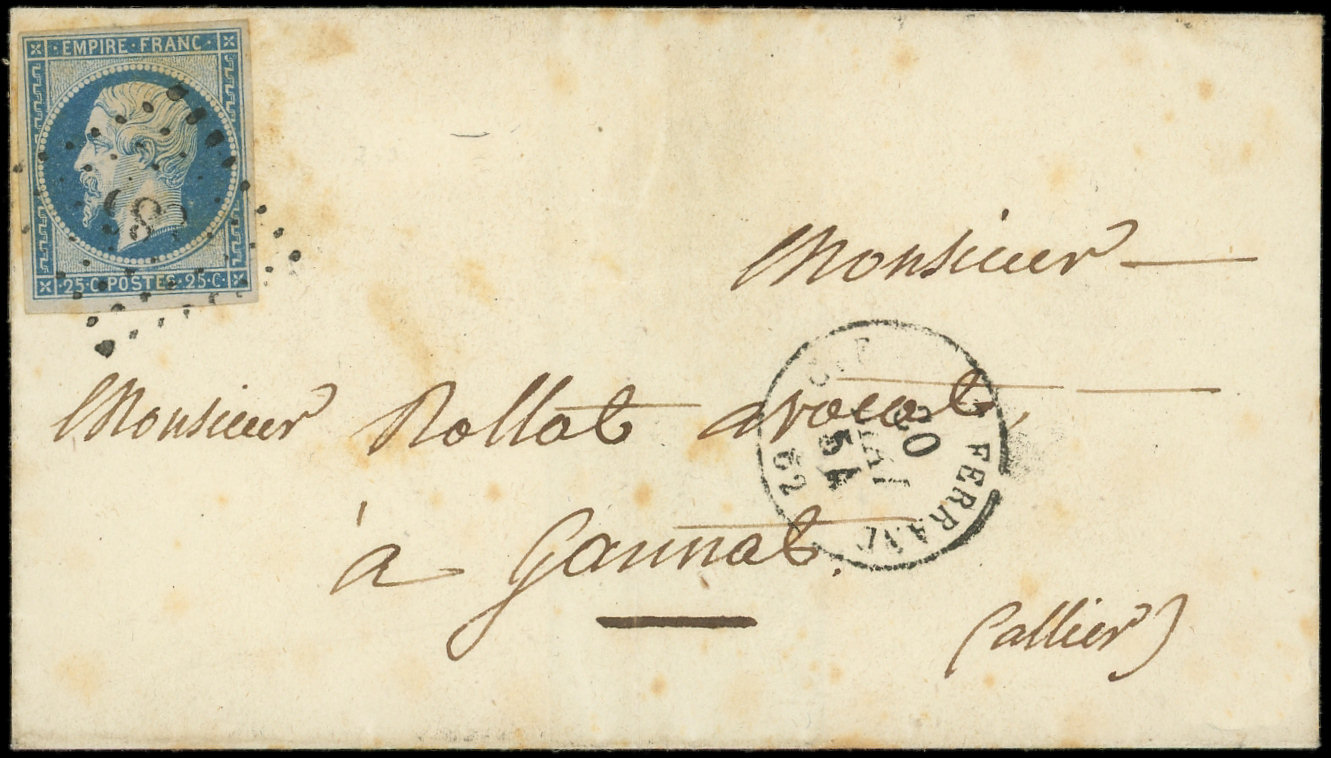 EMPIRE · FRANC ·
· 25 · C · POSTES · 25 · C ·
Monsieur
Monsieur Rollat avocat,
à Gannat.
(allier)
FERRAND
54
62